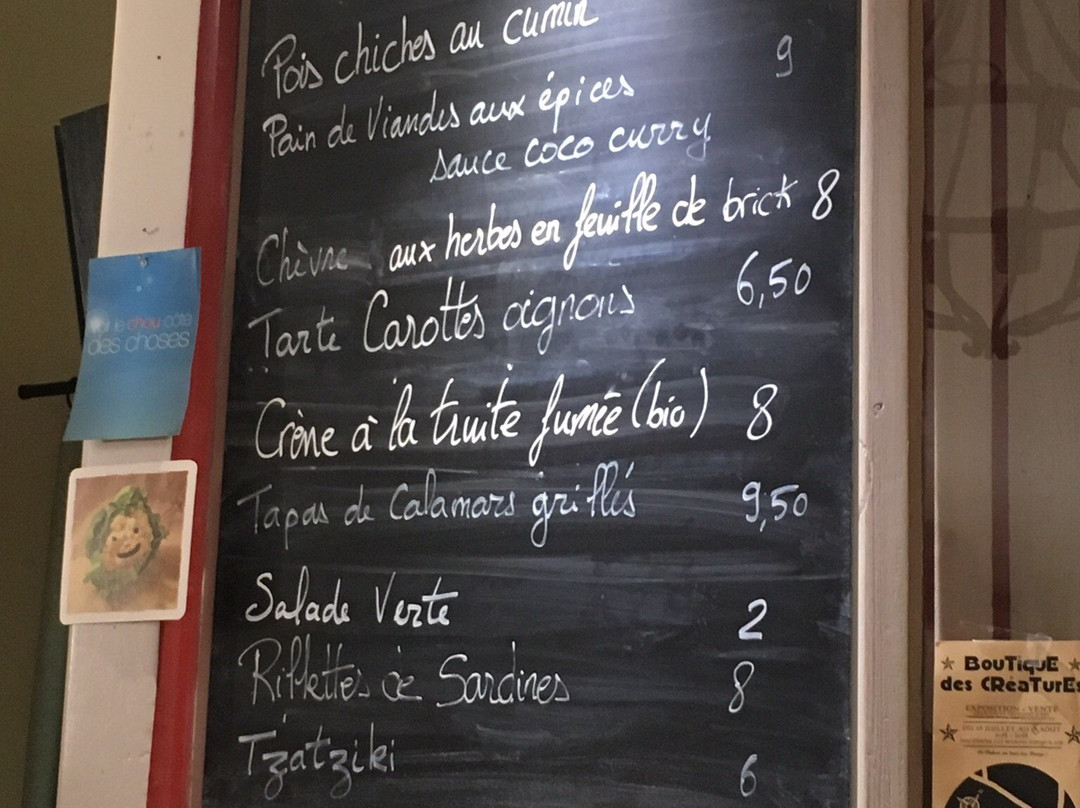 Pois chiches au cumin
9
Pain de Viandes aux épices
sauce coco curry
Chèvre aux herbes en feuille de brick 8
Tarte Carottes oignons 6,50
Crème à la truite fumée (bio) 8
Tapas de Calamars grillés 9,50
Salade Verte 2
Rillettes de Sardines 8
Tzatziki 6
le chou côté
des choses
BouTiquE
des CRéaTurEs
EXPOSITION - VENTE